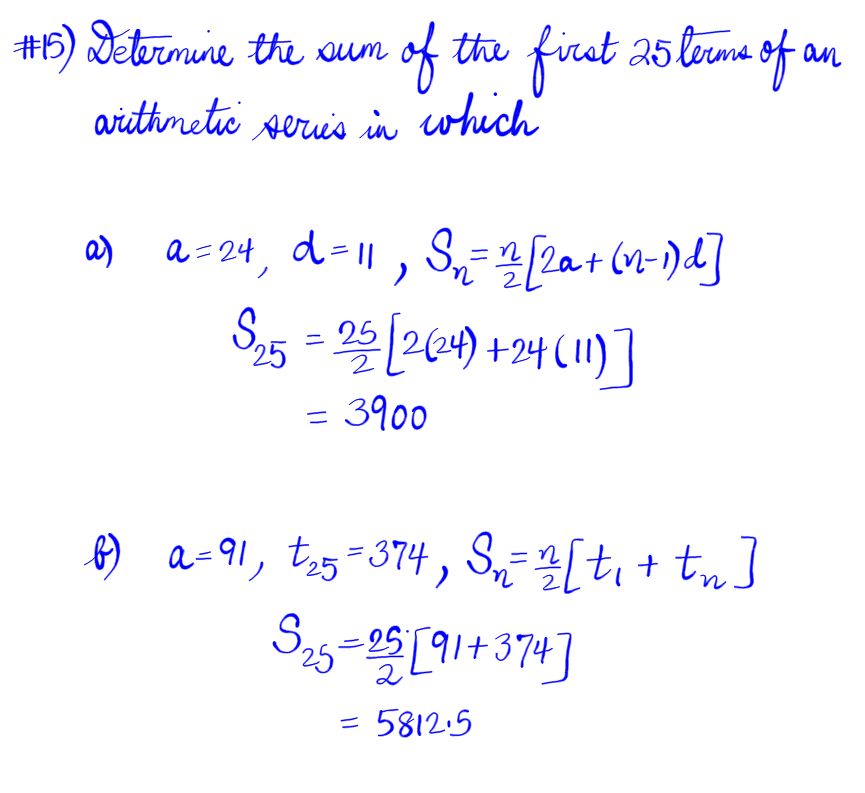 #15) Determine the sum of the first 25 terms of an
arithmetic series in which
a) a = 24, d = 11, Sₙ = n/2 [2a + (n-1)d]
S₂₅ = 25/2 [2(24) + 24(11)]
= 3900
b) a = 91, t₂₅ = 374, Sₙ = n/2 [t₁ + tₙ]
S₂₅ = 25/2 [91 + 374]
= 5812.5